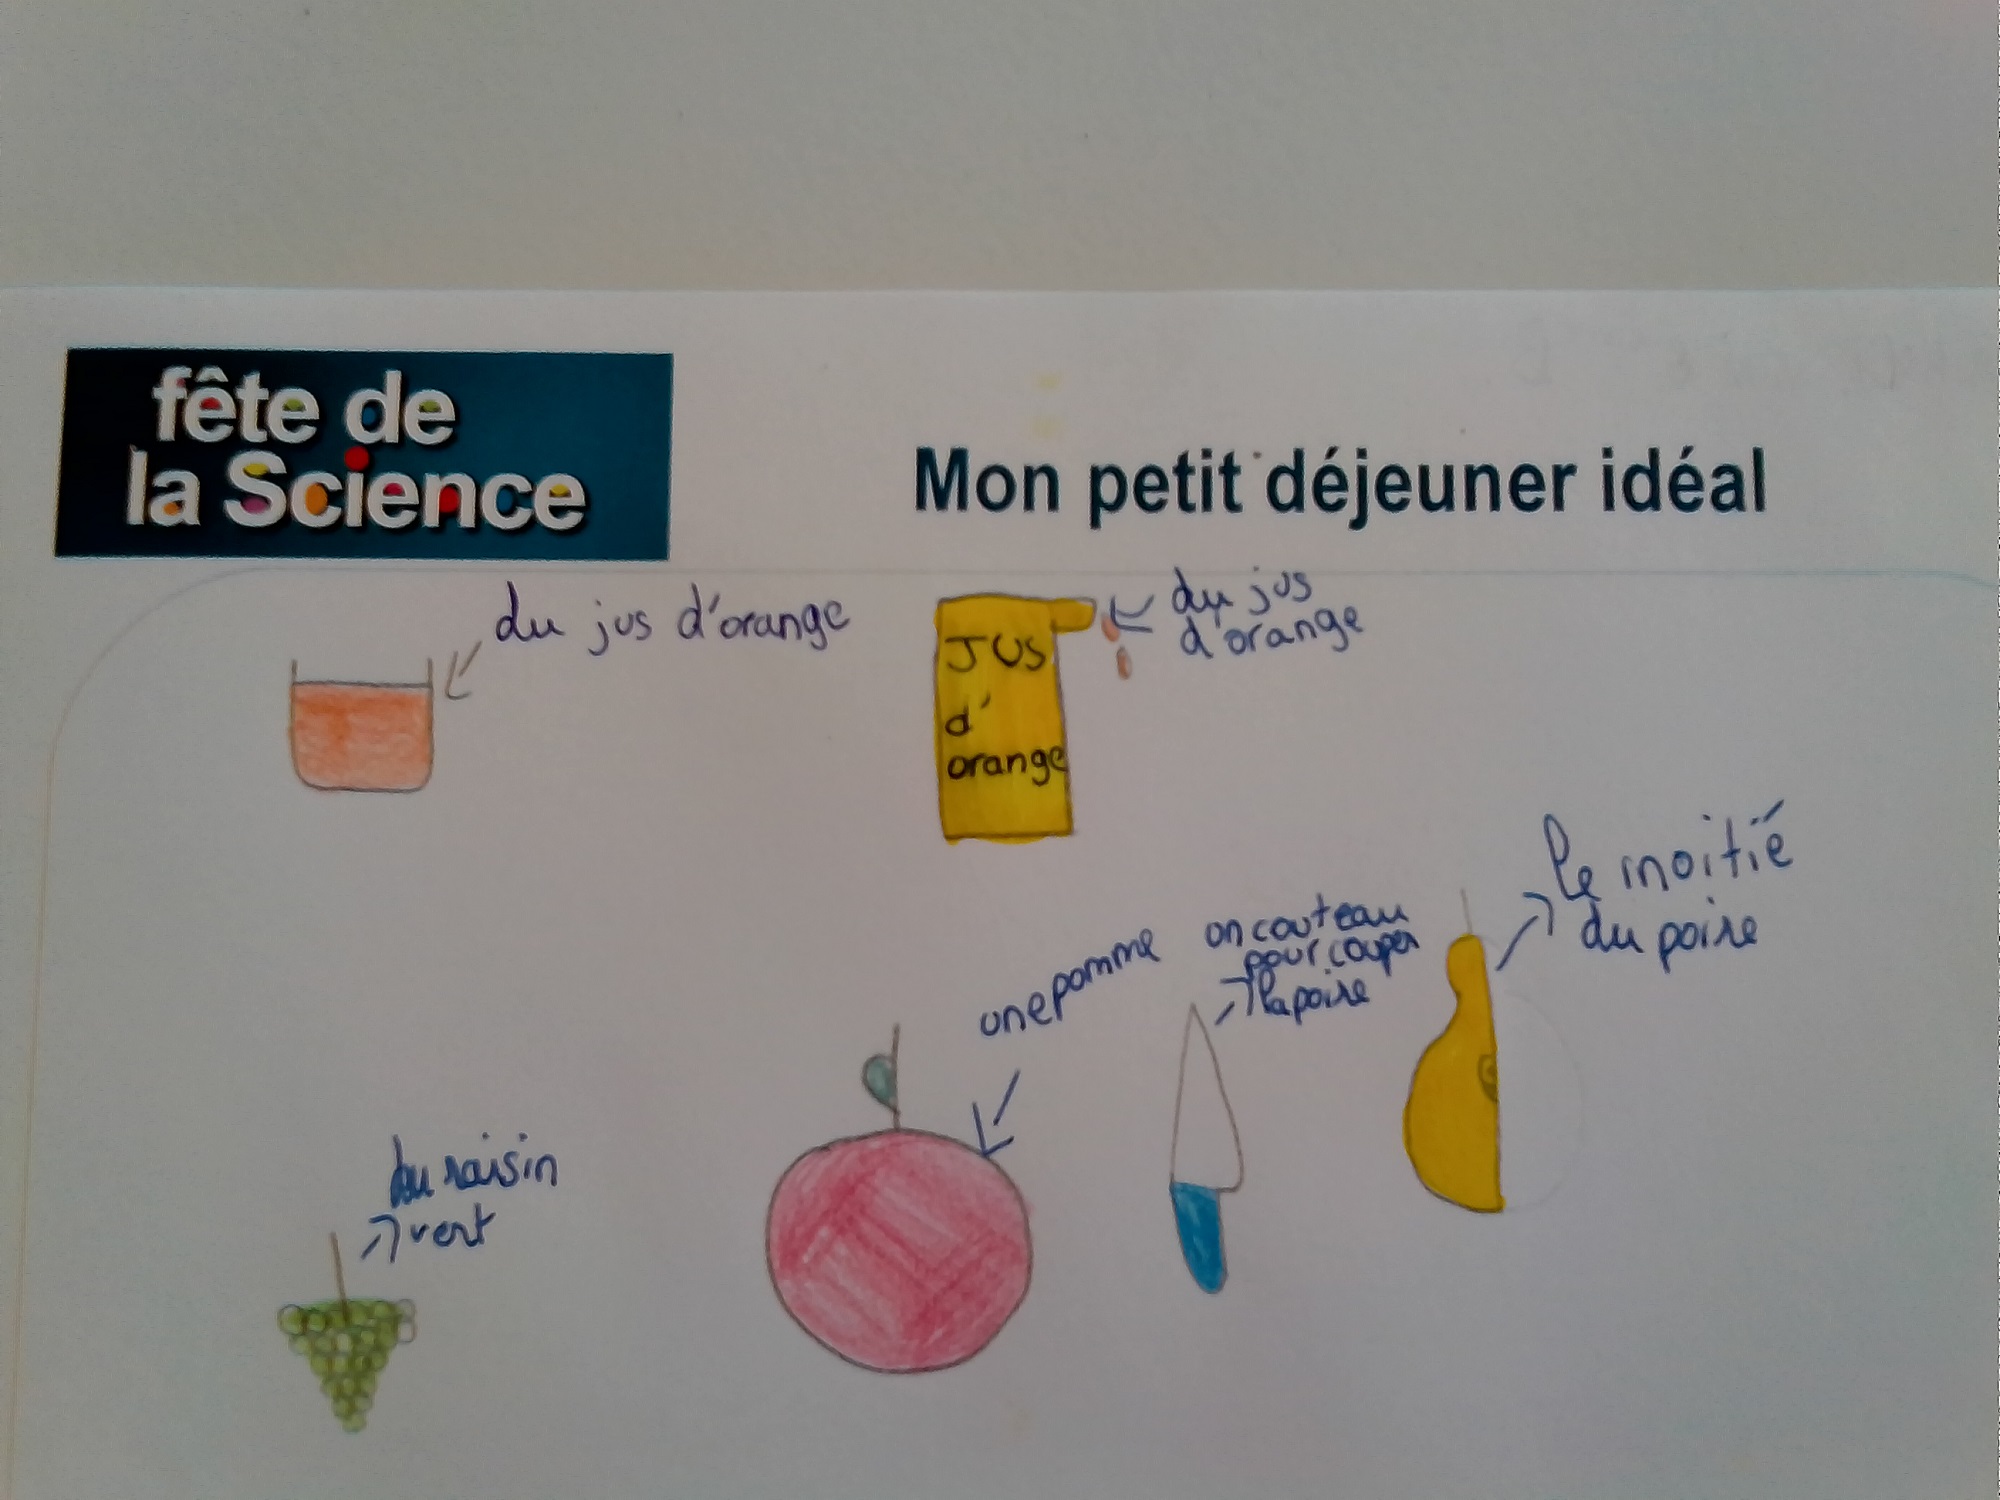 fête de
la Science
Mon petit déjeuner idéal
du jus d'orange
JUS
d'
orange
du jus
d'orange
le moitié
du poire
on couteau
pour couper
la poire
une pomme
du raisin
vert